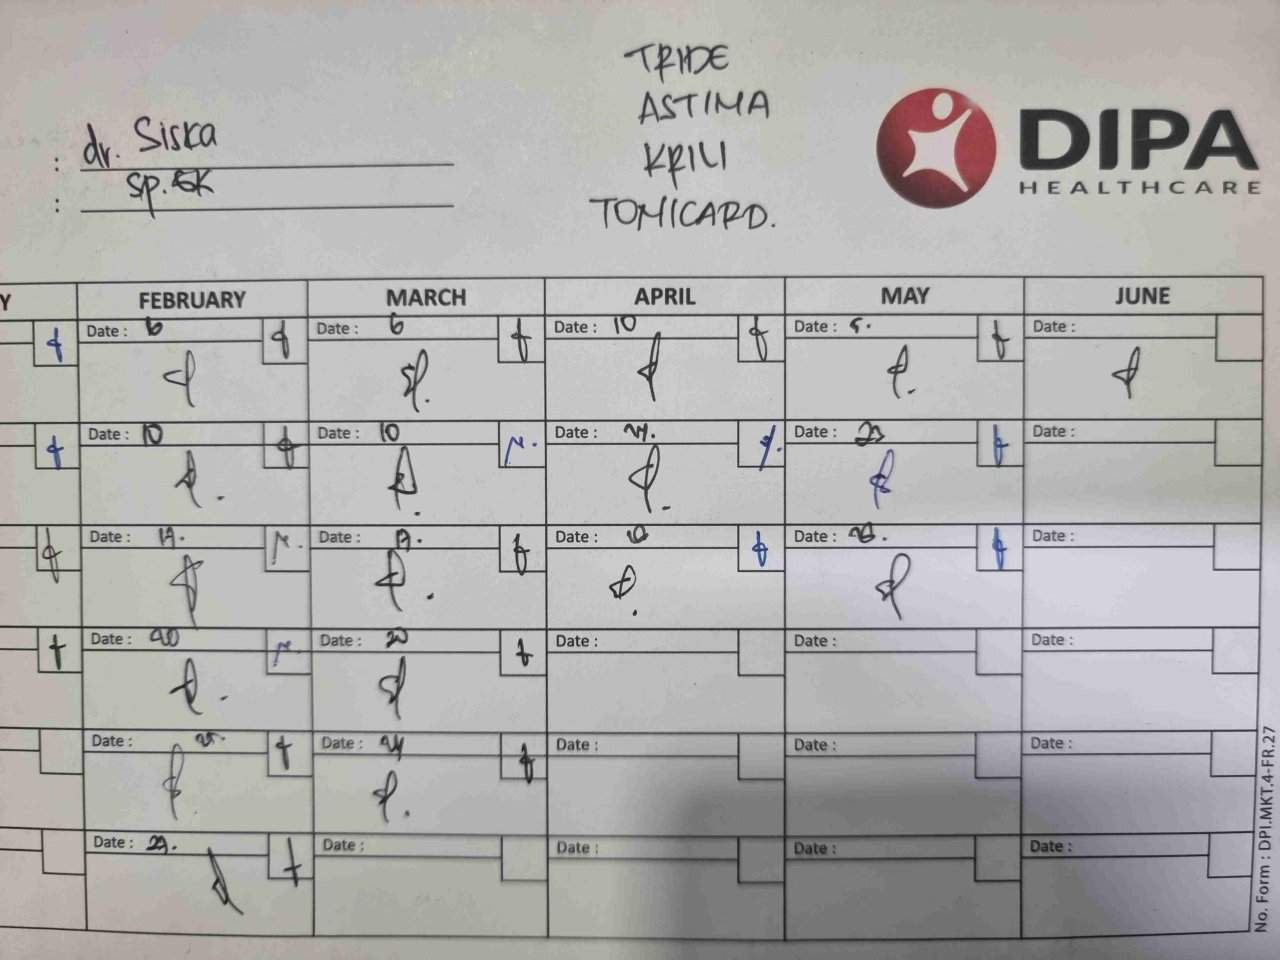 TRIDE
ASTIMA
KRILI
TOMICARD.
: dr. Siska
: sp.GK
DIPA
HEALTHCARE
Y FEBRUARY MARCH APRIL MAY JUNE
Date : 6 Date : 6 Date : 10 Date : 5. Date :
Date : 10 Date : 10 Date : 24. Date : 23 Date :
Date : 17. Date : 17. Date : Date : 28. Date :
Date : 20 Date : 20 Date : Date : Date :
Date : 25. Date : 24 Date : Date : Date :
Date : 27. Date : Date : Date : Date :
No. Form : DPI.MKT.4-FR.27